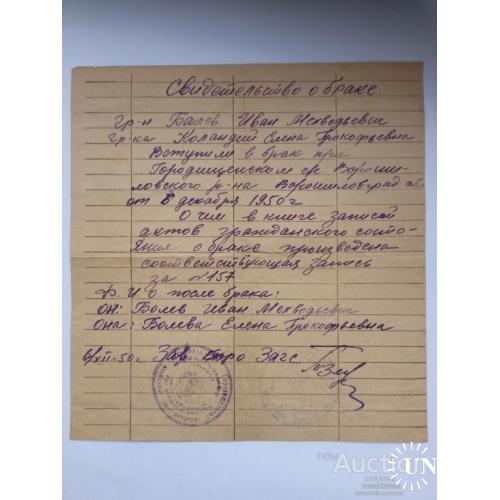 Свидетельство о браке.
гр-н Балев Иван Мехводьевич
гр-ка Коландий Елена Прокофьевна
Вступили в брак при
Городищенском с/с Вороши-
ловского р-на Ворошиловград. обл
от 8 декабря 1950 г
О чем в книге записей
актов гражданского состо-
яния о браке произведена
соответствующая запись
за №157
Ф. И. О. после брака:
он: Болев Иван Мехводьевич
Она: Болева Елена Прокофьевна
6/XII-50г Зав Бюро Загс
Auction
UN